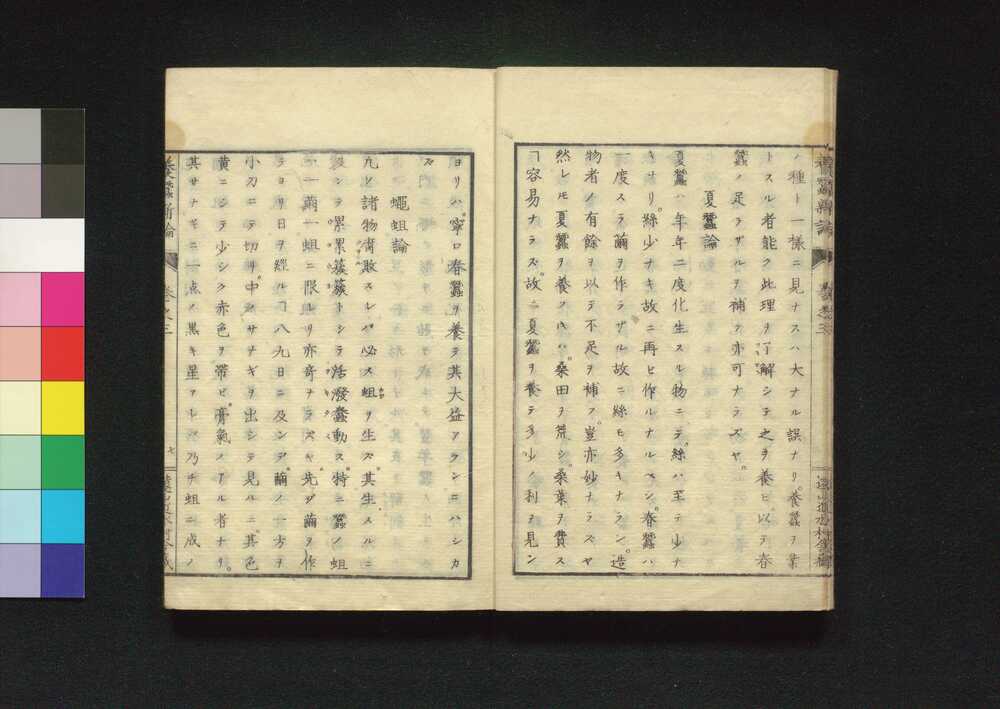 ノ種ト一樣ニ見ナスハ大ナル誤ナリ。養蠶ヲ業
トスル者能ク此理ヲ了解シテ之ヲ養ヒ以テ春
蠶ノ足ラザルヲ補フ亦可ナラズヤ。
夏蠶論
夏蠶ハ年年二度化生スル物ニテ絲ハ至テ少ナ
キナリ。絲少ナキ故ニ再ヒ作ルナルベシ。春蠶ハ
一度スラ繭ヲ作ラザル故ニ絲モ多キナラン。造
物者ノ有餘ヲ以テ不足ヲ補フ。豈亦妙ナラズヤ
然レモ夏蠶ヲ養フハ。桑田ヲ荒シ。桑葉ヲ費ス
ヿ容易ナラズ。故ニ夏蠶ヲ養テ多少ノ利ヲ見ン
ヨリハ。寧ロ春蠶ヲ養テ其大益アランニハシカ
ズ
蠅蛆論
凡ど諸物腐敗スレバ必ス蛆ヲ生ズ。其生スルニ
及ンテ累累蔟蔟トシテ活潑蠢動ス。特ニ蠶ノ蛆
ハ一繭一蛆ニ限ルリ亦奇ナラズヤ。先ダ繭ヲ作
テヨリ日ヲ經ルヿ八九日ニ及ンデ。繭ノ一方ヲ
小刀ニテ切リ。中ノサナギヲ出シテ見ルニ。其色
黄ニシテ少シク赤色ヲ帶ビ。膏氣ノアル者ナリ。
其サナギニ一点ノ黒キ星アレバ。乃チ蛆ニ成ノ
養蠶新論
卷之三
七